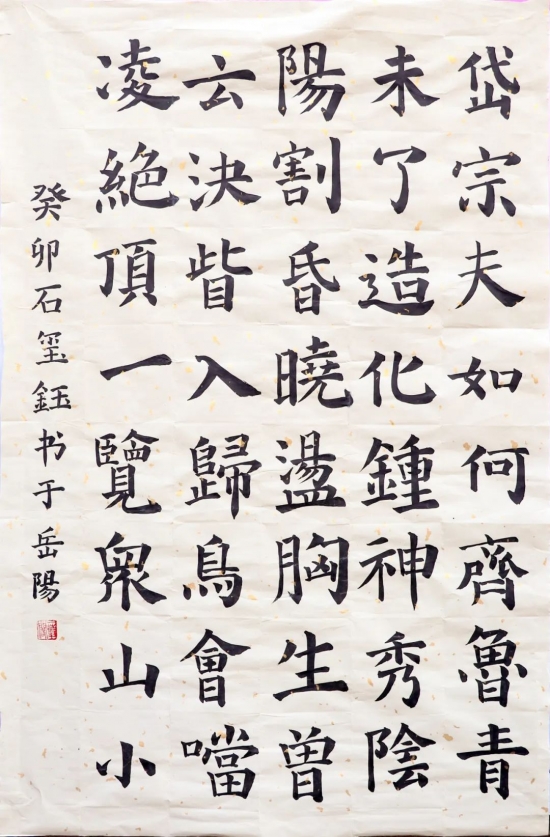 岱宗夫如何齊魯青
未了造化鍾神秀陰
陽割昏曉盪胸生曾
云決眥入歸鳥會噹
凌絶頂一覽衆山小
癸卯石玺鈺书于岳陽